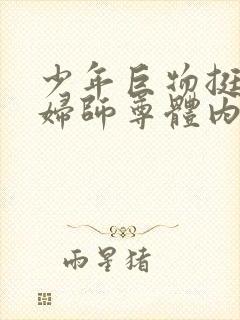 少年巨物挺
婦師尊體內
雨星猪